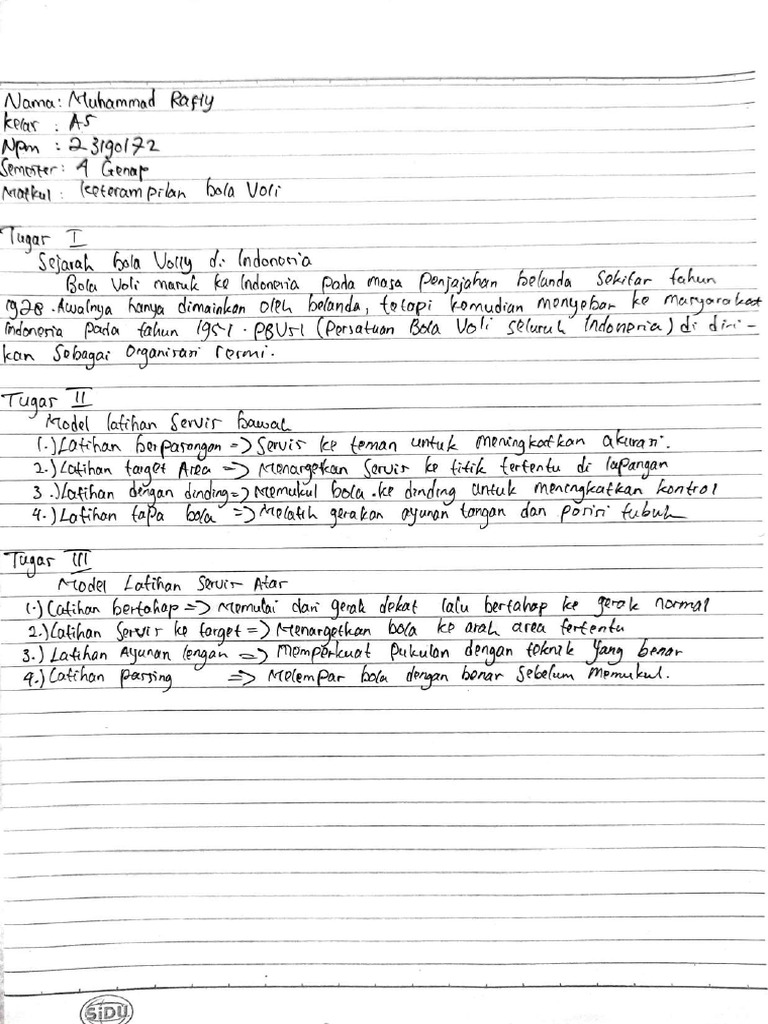 Nama: Muhammad Rafly
Kelas : A5
Npm : 23190172
Semester: 4 Genap
Matkul : Keterampilan bola Voli
Tugas I
Sejarah bola Volly di Indonesia
Bola Voli masuk ke Indonesia pada masa penjajahan belanda sekitar tahun
1928. Awalnya hanya dimainkan oleh belanda, tetapi kemudian menyebar ke masyarakat
Indonesia pada tahun 1951. PBVSI (Persatuan Bola Voli seluruh Indonesia) di diri-
kan sebagai organisasi resmi.
Tugas II
Model latihan Servis bawah
1.) Latihan berpasangan => Servis ke teman untuk meningkatkan akurasi.
2.) Latihan target Area => Menargetkan Servis ke titik tertentu di lapangan
3.) Latihan dengan dinding => Memukul bola ke dinding untuk meningkatkan kontrol
4.) Latihan tapa bola => Melatih gerakan ayunan tangan dan posisi tubuh
Tugas III
Model Latihan Servis Atas
1.) Latihan bertahap => Memulai dari gerak dekat lalu bertahap ke gerak normal
2.) Latihan Servis ke target => Menargetkan bola ke arah area tertentu
3.) Latihan Ayunan lengan => Memperkuat pukulan dengan teknik yang benar
4.) Latihan passing => Melempar bola dengan benar sebelum memukul.
SiDU